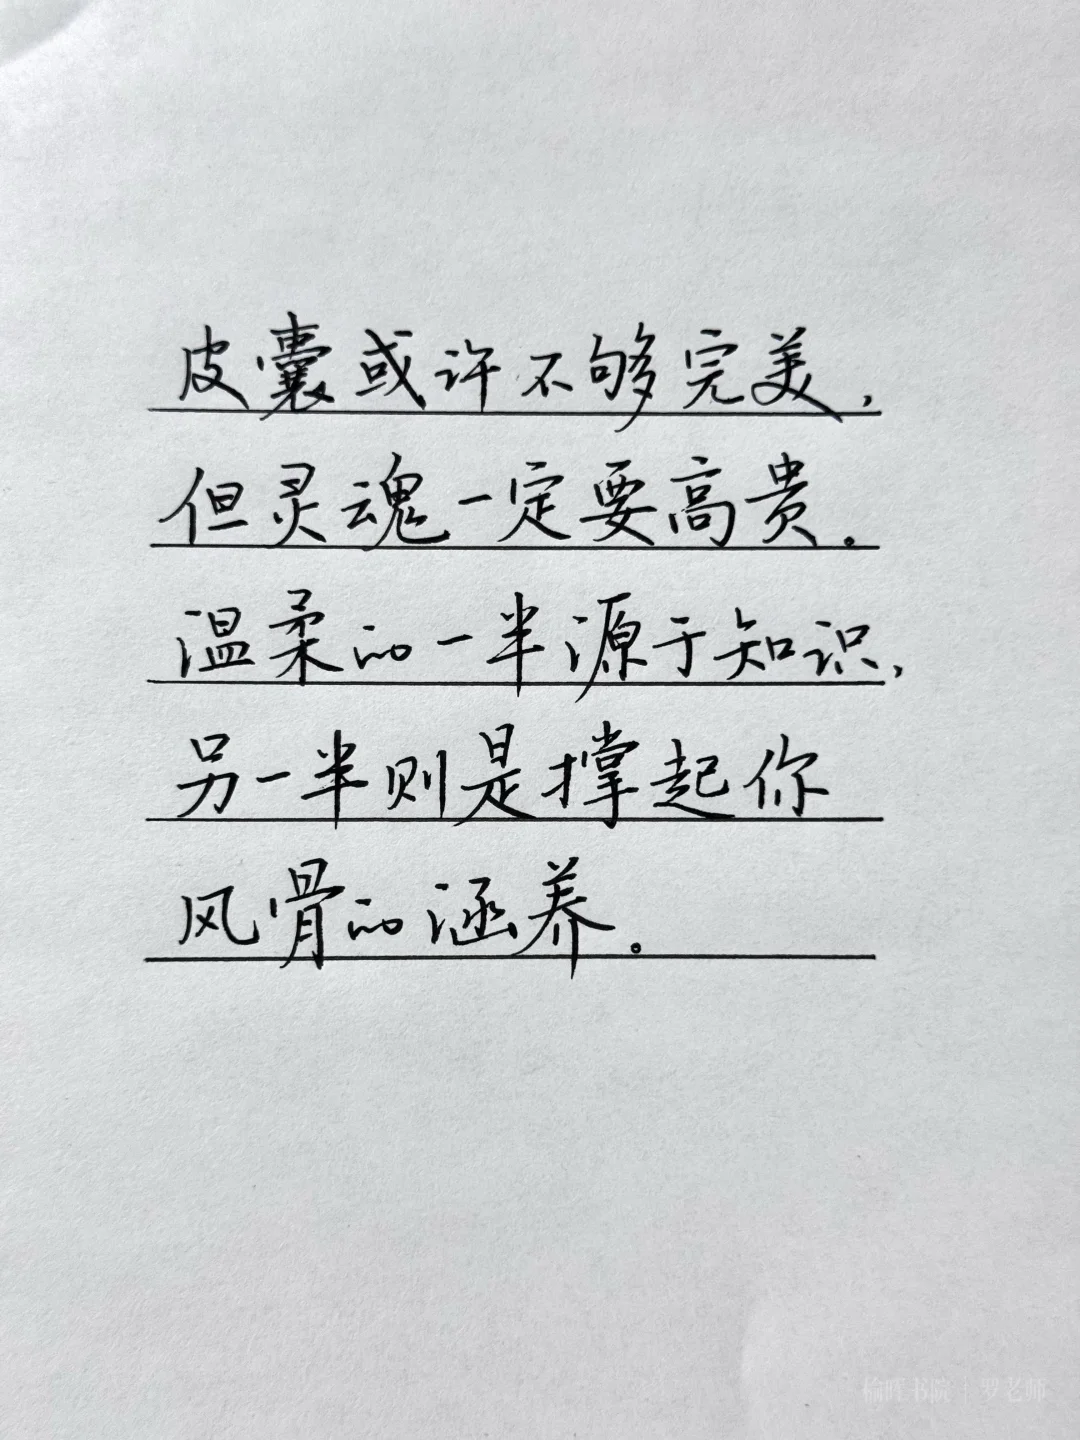 皮囊或许不够完美,
但灵魂一定要高贵.
温柔的一半源于知识,
另一半则是撑起你
风骨的涵养.
榆晖书院|罗老师